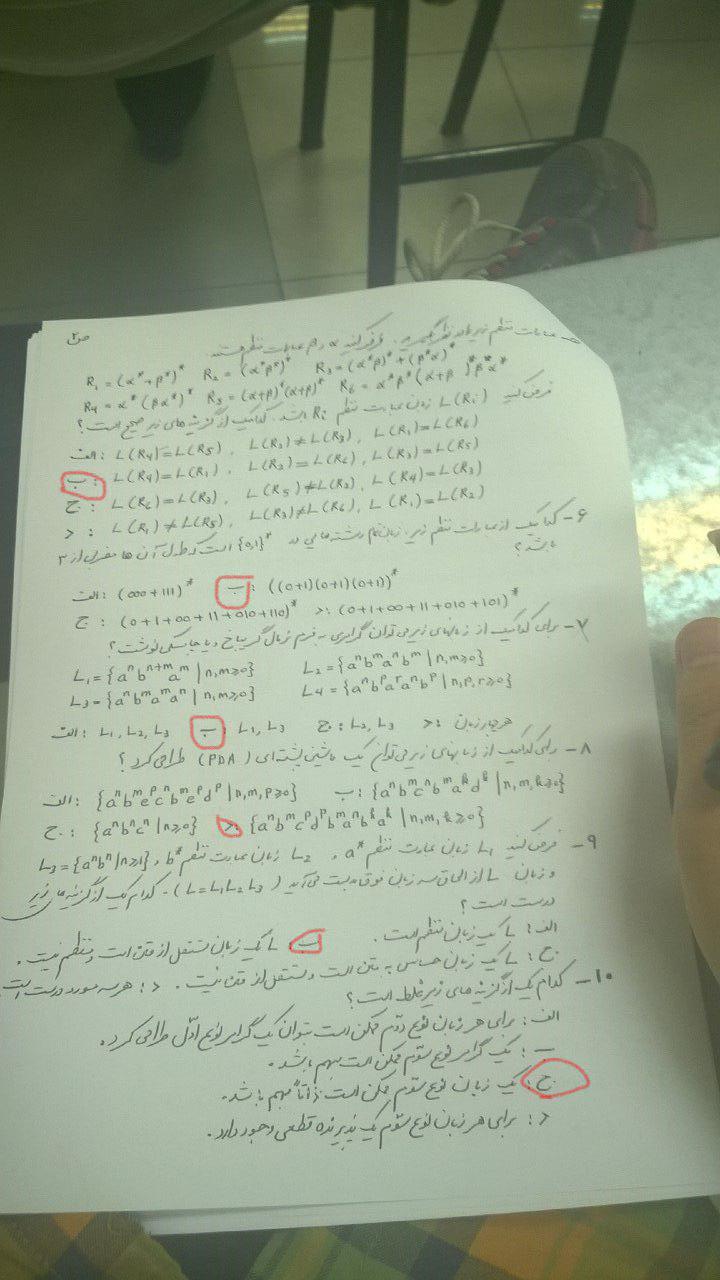 ص۲
۵- عبارات منظم زیر را در نظر بگیرید. فرض کنید α و β عبارات منظم هستند.
R₁ = (α* + β*)* R₂ = (α*β*)* R₃ = (α*β)* + (β*α)*
R₄ = α*(βα*)* R₅ = (α+β)*(α+β)* R₆ = α*β*(α+β)*β*α*
فرض کنید L(Rᵢ) زبان عبارت منظم Rᵢ باشد. کدامیک از گزینه های زیر صحیح است؟
الف: L(R₄)=L(R₅) , L(R₂)≠L(R₃) , L(R₁)=L(R₆)
ب: L(R₄)=L(R₁) , L(R₂)=L(R₆) , L(R₃)=L(R₅)
ج: L(R₆)=L(R₃) , L(R₅)≠L(R₂) , L(R₄)=L(R₃)
د: L(R₁)≠L(R₅) , L(R₃)≠L(R₆) , L(R₁)=L(R₂)
۶- کدامیک از عبارات منظم زیر، زبان تمام رشته هایی در {0,1}* است که طول آن ها مضربی از ۳
باشد؟
الف: (000+111)* ب: ((0+1)(0+1)(0+1))*
ج: (0+1+00+11+010+110)* د: (0+1+00+11+010+101)*
۷- برای کدامیک از زبانهای زیر می توان گرامری به فرم نرمال گریباخ و یا چامسکی نوشت؟
L₁={aⁿbⁿ⁺ᵐaᵐ | n,m≥0} L₂={aⁿbᵐaⁿbᵐ | n,m≥0}
L₃={aⁿbᵐaᵐaⁿ | n,m≥0} L₄={aⁿbᵖaʳaⁿbᵖ | n,p,r≥0}
الف: L₁,L₂,L₃ ب: L₁,L₃ ج: L₂,L₃ د: هر چهار زبان
۸- برای کدامیک از زبانهای زیر می توان یک ماشین پشته ای (PDA) طراحی کرد؟
الف: {aⁿbᵐeᵖcⁿbᵐeᵖdᵖ | n,m,p≥0} ب: {aⁿbᵐcⁿbᵐaᵏdᵏ | n,m,k≥0}
ج: {aⁿbⁿcⁿ | n≥0} د: {aⁿbᵐcᵖdᵖbᵐaⁿbᵏaᵏ | n,m,k≥0}
۹- فرض کنید L₁ زبان عبارت منظم a* ، L₂ زبان عبارت منظم b* ، L₃={aⁿbⁿ | n≥1}
و زبان L از الحاق سه زبان فوق بدست می آید (L=L₁L₂L₃). کدام یک از گزینه های زیر
درست است؟
الف: L یک زبان منظم است. ب: L یک زبان مستقل از متن است و منظم نیست.
ج: L یک زبان حساس به متن است و مستقل از متن نیست. د: هر سه مورد درست است
۱۰- کدام یک از گزینه های زیر غلط است؟
الف: برای هر زبان نوع دوم ممکن است بتوان یک گرامر نوع اول طراحی کرد.
ب: یک گرامر نوع سوم ممکن است مبهم باشد.
ج: یک زبان نوع سوم ممکن است ذاتاً مبهم باشد.
د: برای هر زبان نوع سوم یک پذیرنده قطعی وجود دارد.